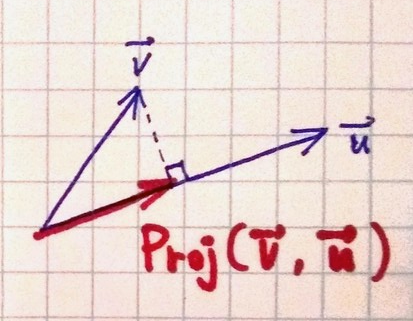 v⃗
u⃗
Proj(v⃗, u⃗)